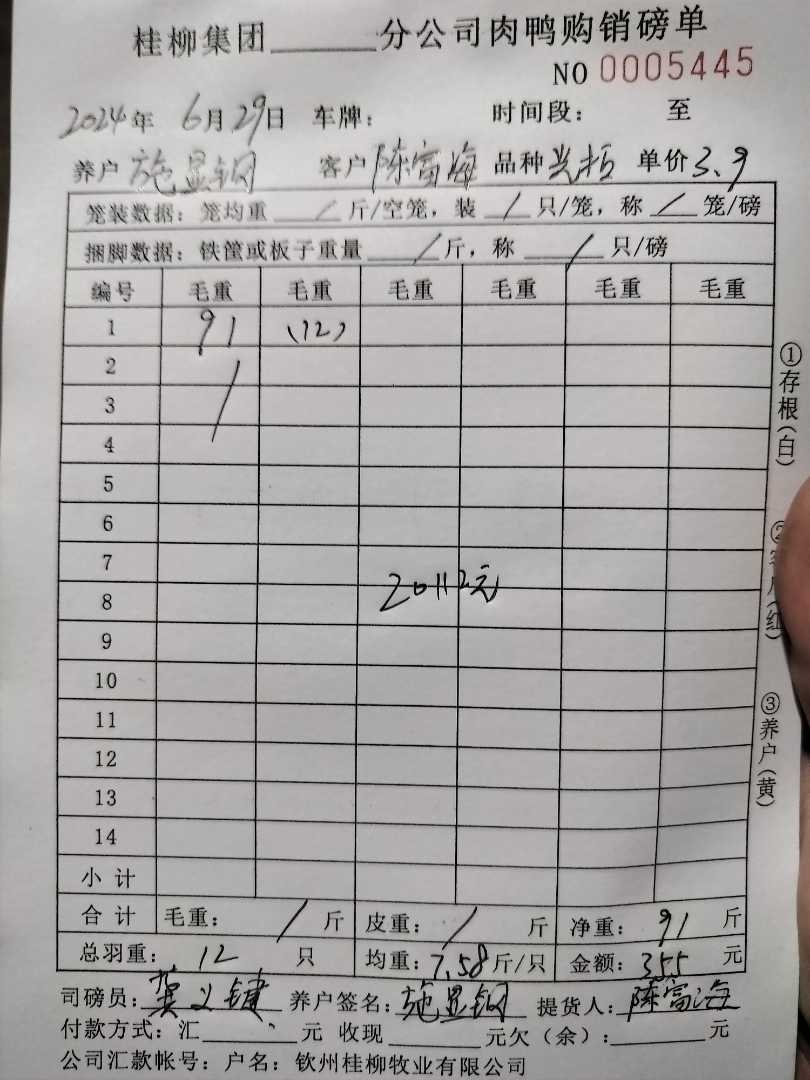 桂柳集团______分公司肉鸭购销磅单
NO 0005445
2024年 6月29日 车牌： 时间段： 至
养户 施显钢 客户 陈富海 品种 单价 3.9
笼装数据：笼均重 / 斤/空笼，装 / 只/笼，称 / 笼/磅
捆脚数据：铁筐或板子重量 / 斤，称 / 只/磅
编号 毛重 毛重 毛重 毛重 毛重 毛重
1 91 (12)
2 /
3
4
5
6
7
8 20112元
9
10
11
12
13
14
小计
合计 毛重： / 斤 皮重： / 斤 净重： 91 斤
总羽重： 12 只 均重：7.58斤/只 金额：355 元
司磅员：龚义键 养户签名：施显钢 提货人：陈富海
付款方式：汇______元 收现______元欠（余）：______元
公司汇款帐号：户名：钦州桂柳牧业有限公司
①存根（白）
②客户（红）
③养户（黄）